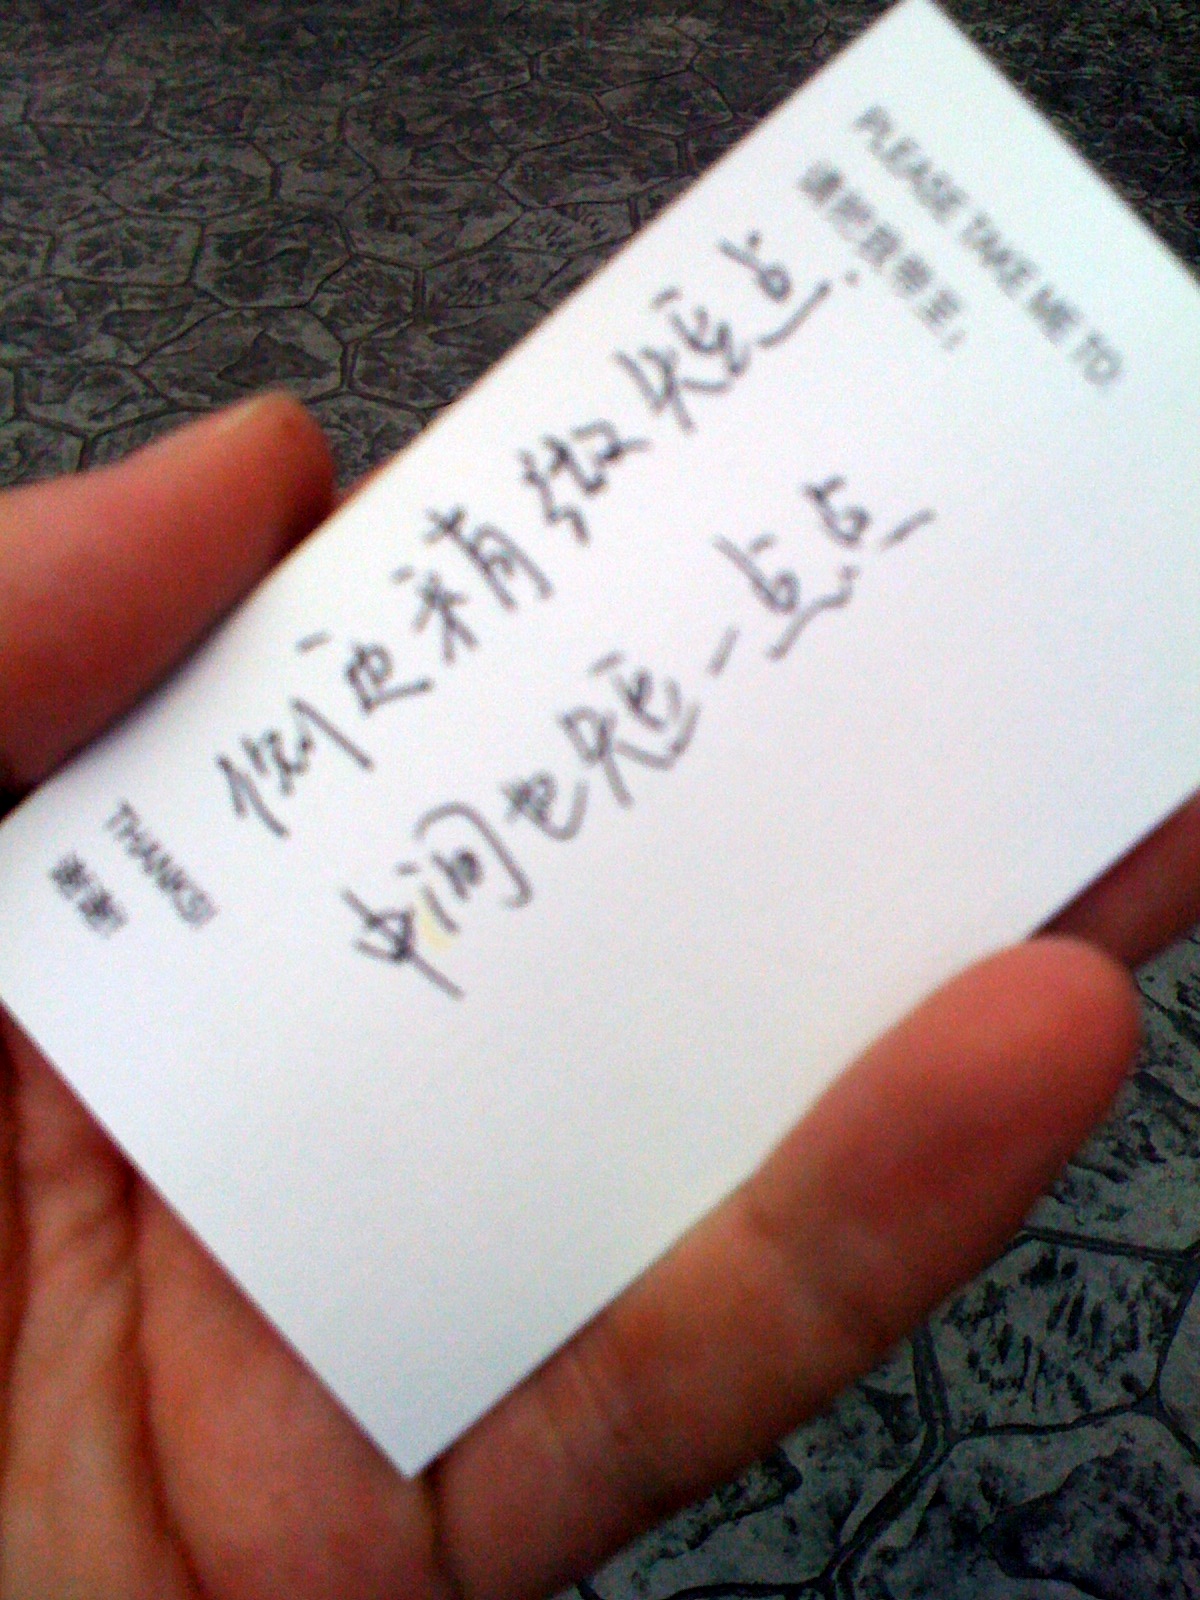 PLEASE TAKE ME TO:
请把我带至:
侧边稍微短点.
中间也短一点点
THANKS!
谢谢!